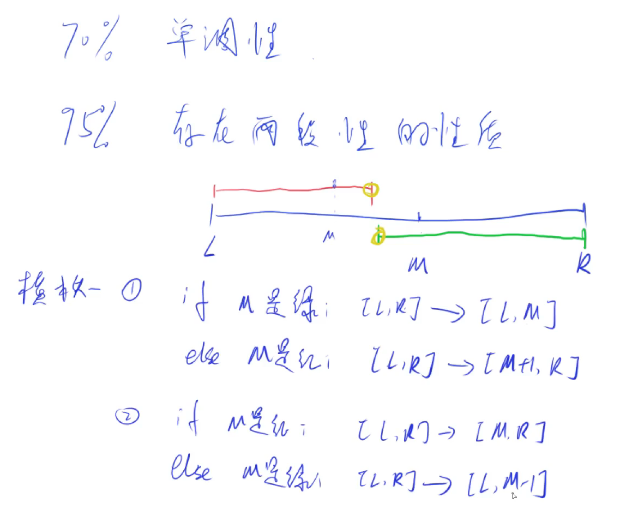 70% 单调性
95% 存在两段性的性质
L M M R
模板一 ① if M是绿: [L,R] → [L,M]
else M是红: [L,R] → [M+1,R]
② if M是红: [L,R] → [M,R]
else M是绿: [L,R] → [L,M-1]